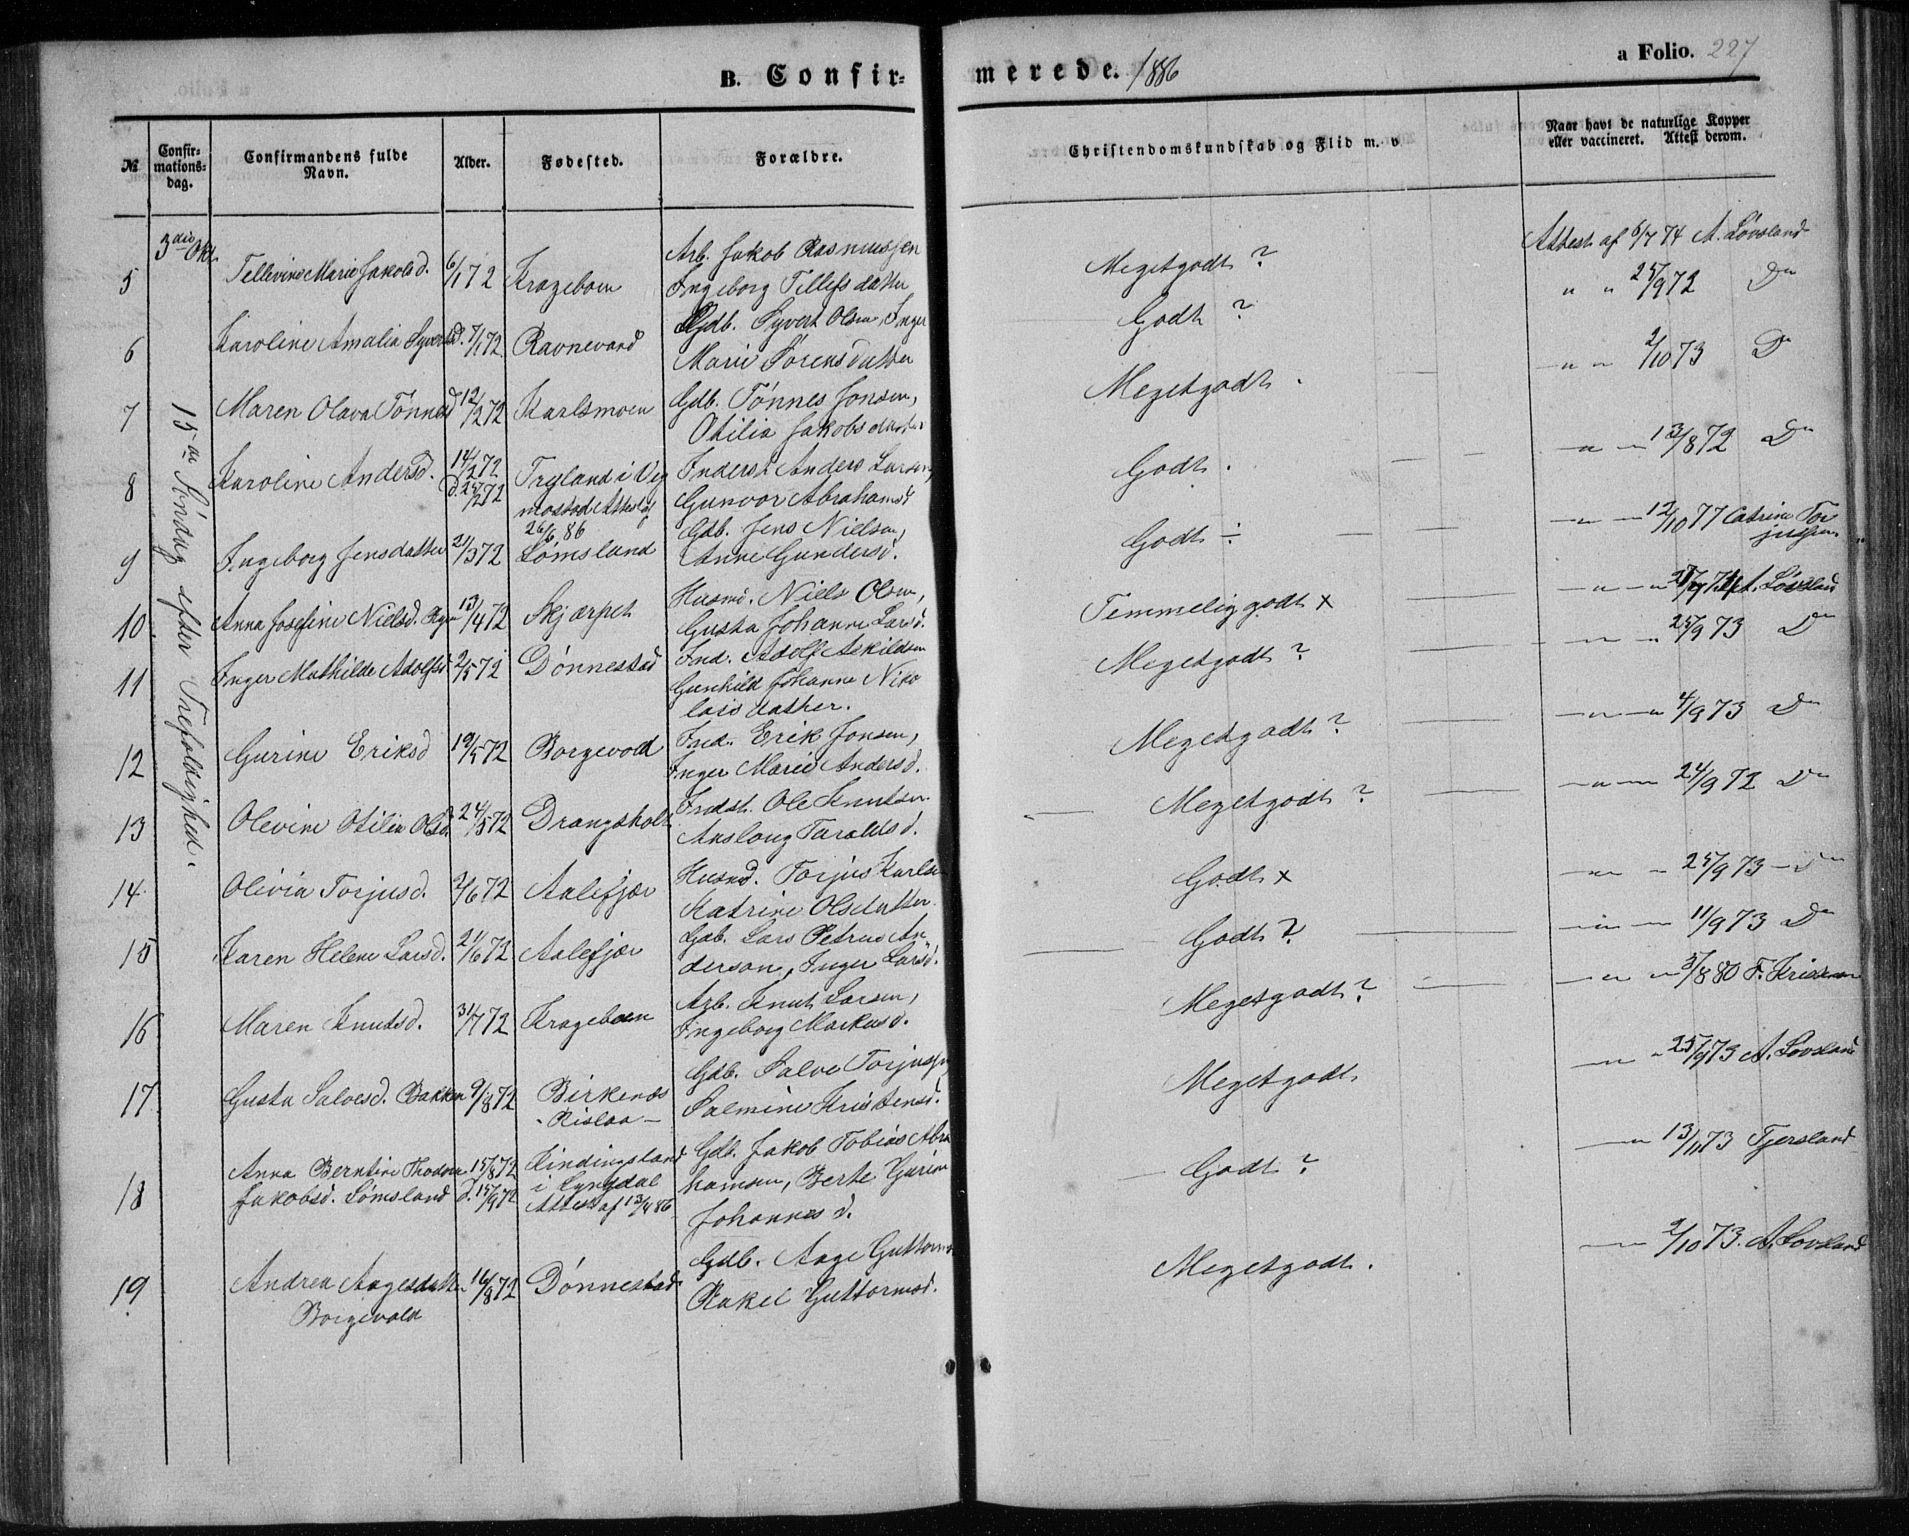 B. Confir-
merede. 1886
a Folio. 227
No
Confir-
mations-
dag.
Confirmandens fulde
Navn.
Alder.
Fødested.
Forældre.
Christendomskundskab og Flid m. v
Naar havt de naturlige Kopper
eller vaccineret. Attest derom.
3die Okt.
15de Søndag efter Trefoldighed.
5 Tellevine Marie Jakobsd. 6/1 72 Krageboen
Arb. Jakob Rasmussen
Ingeborg Tellefsdatter
Megetgodt ?
Attest af 6/7 74 A. Løvsland
6 Karoline Amalia Syvertsd. 7/1 72 Ravnevand
Gdb. Syvert Olsen, Inger
Marie Sørensdatter
Godt ?
" " 25/9 72 Do
7 Maren Olava Tønnesd 12/2 72 Karlsmoen
Gdb. Tønnes Jonsen,
Otilia Jakobsdatter
Megetgodt .
" " 2/10 73 Do
8 Karoline Andersd. 14/2 72
d. 25/2 72
Tryland i Vig
mostad Attest af
26/6 86
Inderst Anders Larsen,
Gunvor Abrahamsd
Godt .
" " 13/8 72 Do
9 Ingeborg Jensdatter 21/3 72 Lømsland
Gdb. Jens Nielsen,
Anne Gundersd.
Godt ÷
" " 12/10 77 Catrine Tor
jussen
10 Anna Josefine Nielsd. 13/4 72 Skjærpet
Husmd. Niels Olsen,
Gusta Johanne Larsd.
Temmelig godt x
A. Løvsland
11 Inger Mathilde Adolfsd 2/5 72 Dønnestad
Ind. Adolf Askildsen
Gunhild Johanne Niko
laisdatter.
Megetgodt ?
" " 25/9 73 Do
12 Gurine Eriksd 19/5 72 Borgevold
Ind. Erik Jonsen,
Inger Marie Andersd.
Megetgodt ?
" " 4/9 73 Do
13 Olevine Otilia Olsd. 24/5 72 Drangsholt
Indst. Ole Knutsen
Anslaug Taraldsd.
Megetgodt ?
" " 24/9 72 Do
14 Olivia Torjusd. 2/6 72 Aalefjær
Husmd. Torjus Karlsen
Katrine Olsdatter
Godt x
" " 25/9 73 Do
15 Karen Helene Larsd. 21/6 72 Aalefjær
Gdb. Lars Petrus An
derson, Inger Larsd.
Godt ?
" " 11/9 73 Do
16 Maren Knutsd. 31/7 72 Krageboen
Arb. Knut Larsen,
Ingeborg Markusd.
Megetgodt ?
" " 3/8 80 F.
17 Gusta Salvesd. Bakken 9/8 72 Birkenæs
- Rislaa -
Gdb. Salve Torjussen
Salmine Kristensd.
Megetgodt
" " 25/9 73 A. Løvsland
18 Anna Berntine Thodora
Jakobsd. Lømsland
15/8 72
d. 15/9 72
Kindingsland
i Lyngdal
Attest af 13/4 86
Gdb. Jakob Tobias Abra
hamsen, Berte Gurine
Johannesd.
Godt ?
" 13/11 73 Tjersland
19 Andrea Aagesdatter
Borgevold
16/8 72 Dønnestad
Gdb. Aage Guttorms
Rakel Guttormsd.
Megetgodt .
" 2/10 73. A. Løvsland